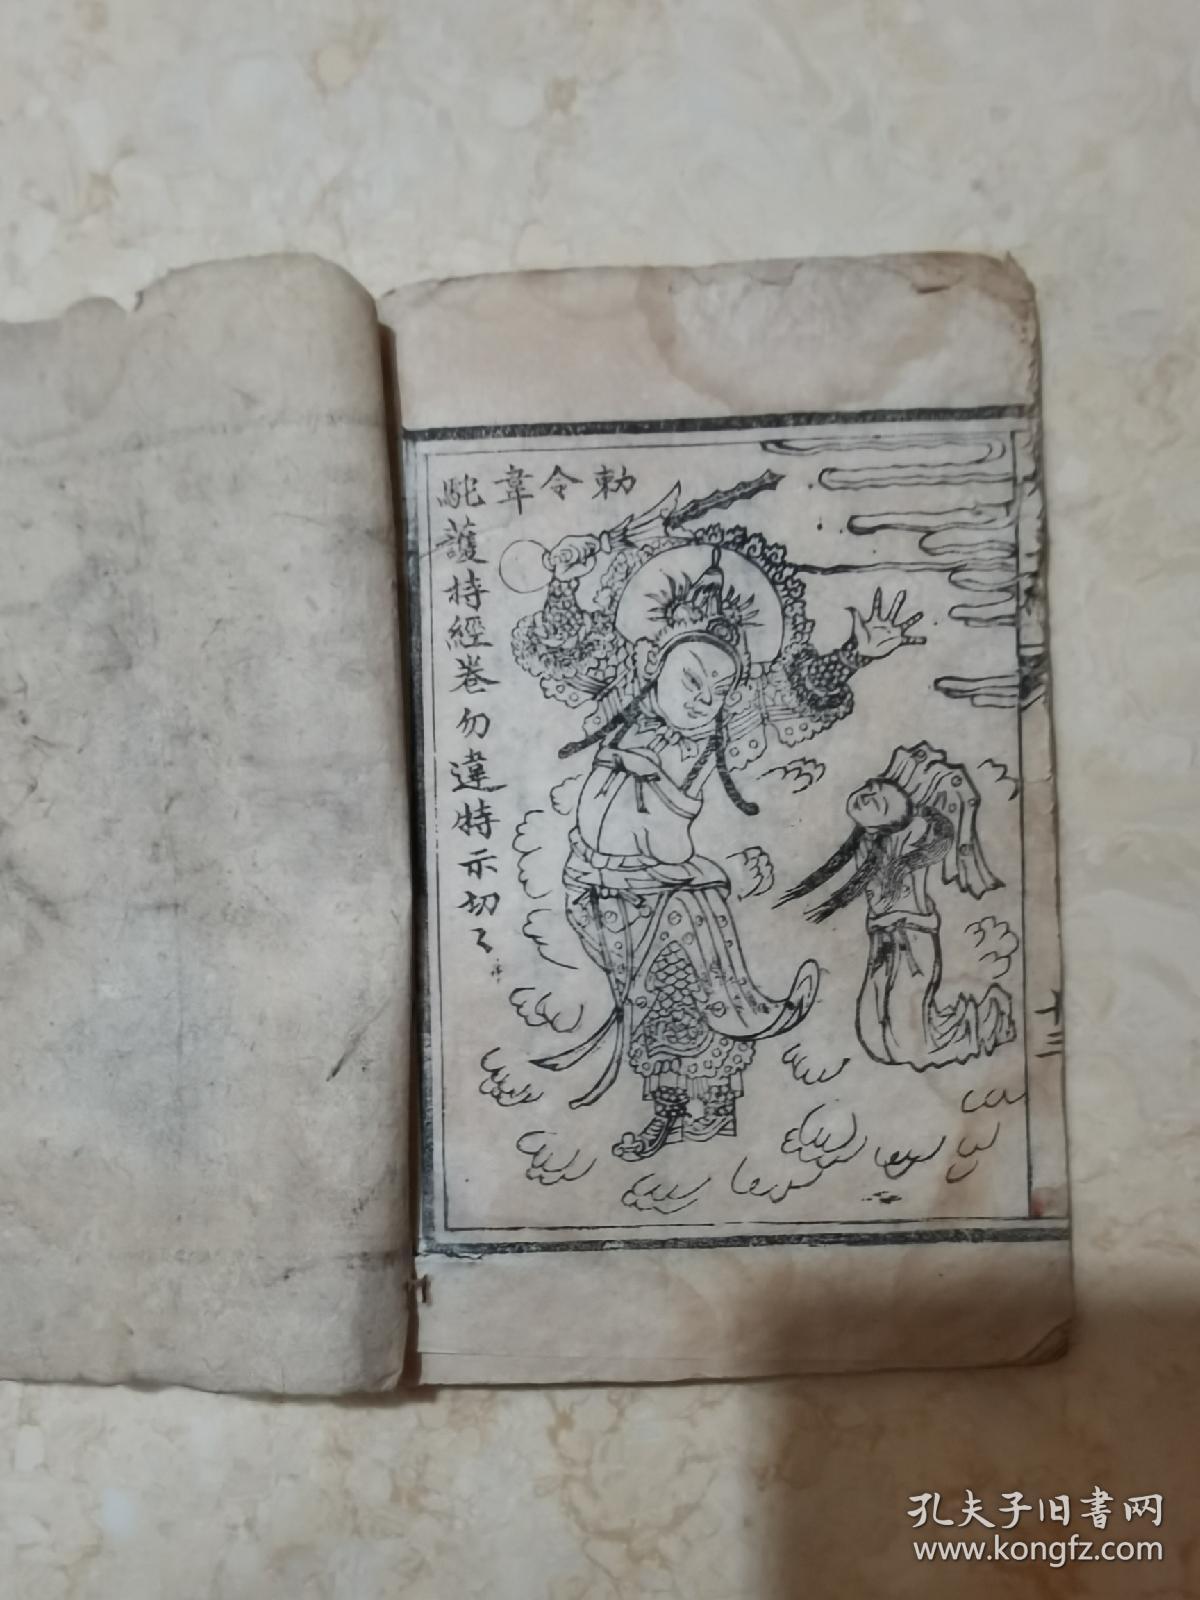 勅令韋
馱護持經卷勿違特示切々
十三
孔夫子旧書网
www.kongfz.com